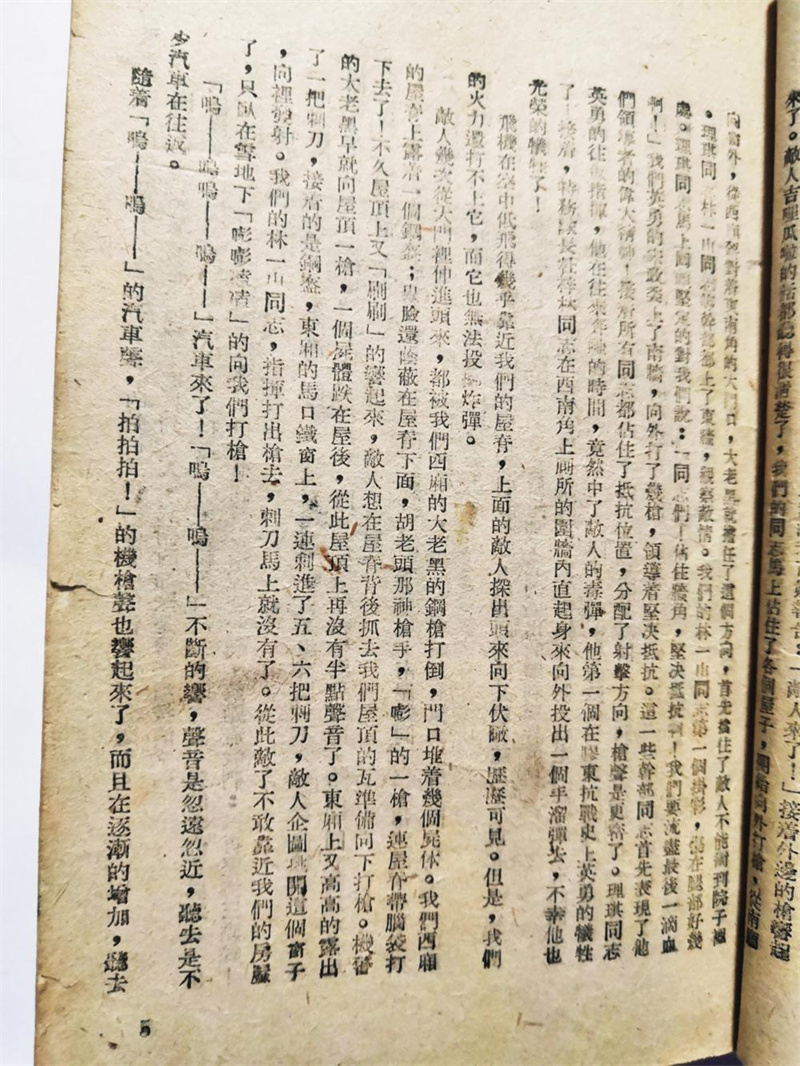 來了。敵人吉哩瓜啦的話都聽得很清楚了，我們的同志馬上佔住了各個屋子，開始向外打槍，從南
向外，從西面列對着東南角的大門口，大老黑就擔任了這個方向，首先擋住了敵人不能衝到院子裡
。理琪同 林一山同志 幹部都上了東牆，觀察敵情。我們的林一山同志第一個掛彩，傷在腿部好幾
處。理琪同志馬上 堅定的對我們說：「同志們！佔住牆角，堅決抵抗啊！我們要流盡最後一滴血
啊！」我們英勇的 政委上了南牆，向外打了幾槍，領導着堅決抵抗。這一些幹部同志首先表現了他
們領導者的偉大精神！接着所有同志都佔住了抵抗位置，分配了射擊方向，槍聲是更密了。理琪同志
英勇的往返指揮，他在往來 的時間，竟然中了敵人的毒彈，他第一個在膠東抗戰史上英勇的犧牲
了！接着，特務隊長 同志在西南角上廁所的圍牆內直起身來向外投出一個手溜彈去，不幸他也
光榮的犧牲了！
飛機在空中低飛得幾乎靠近我們的屋脊，上面的敵人探出頭來向下伏瞰，歷歷可見。但是，我們
的火力還打不上它，而它也無法投擲炸彈。
敵人幾次從大門裡伸進頭來，都被我們西廂的大老黑的鋼槍打倒，門口堆着幾個屍体。我們西廂
的屋脊上露着一個鋼盔；鬼臉還蔭蔽在屋脊下面，胡老頭那神槍手，「嘭」的一槍，連屋脊帶腦袋打
下去了！不久屋頂上又「刷刷」的響起來，敵人想在屋脊背後抓去我們屋頂的瓦準備向下打槍。機警
的大老黑早就向屋頂一槍，一個屍體跌在屋後，從此屋頂上再沒有半點聲音了。東廂上又高高的露出
了一把刺刀，接着的是鋼盔，東廂的馬口鐵窗上，一連刺進了五、六把刺刀，敵人企圖挑開這個窗子
，向裡發射。我們的林一山同志，指揮打出槍去，刺刀馬上就沒有了。從此敵了不敢靠近我們的房屋
了，只臥在雪地下「嘭嘭 」的向我們打槍！
「嗚——嗚嗚——嗚——」汽車來了！「嗚——嗚——」不斷的響，聲音是忽遠忽近，聽去是不
少汽車在往返。
隨着「嗚——嗚——」的汽車聲，「拍拍拍！」的機槍聲也響起來了，而且在逐漸的增加，聽去
5